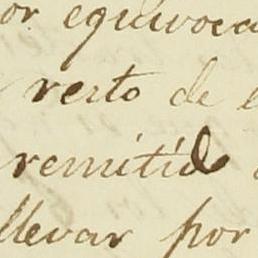 or equivoca
resto de e
remitid
llevar por